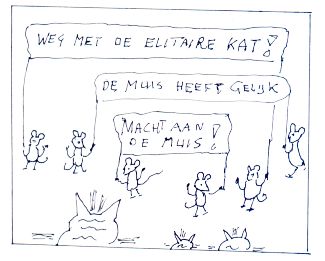 WEG MET DE ELITAIRE KAT!
DE MUIS HEEFT GELIJK
MACHT AAN
DE MUIS!